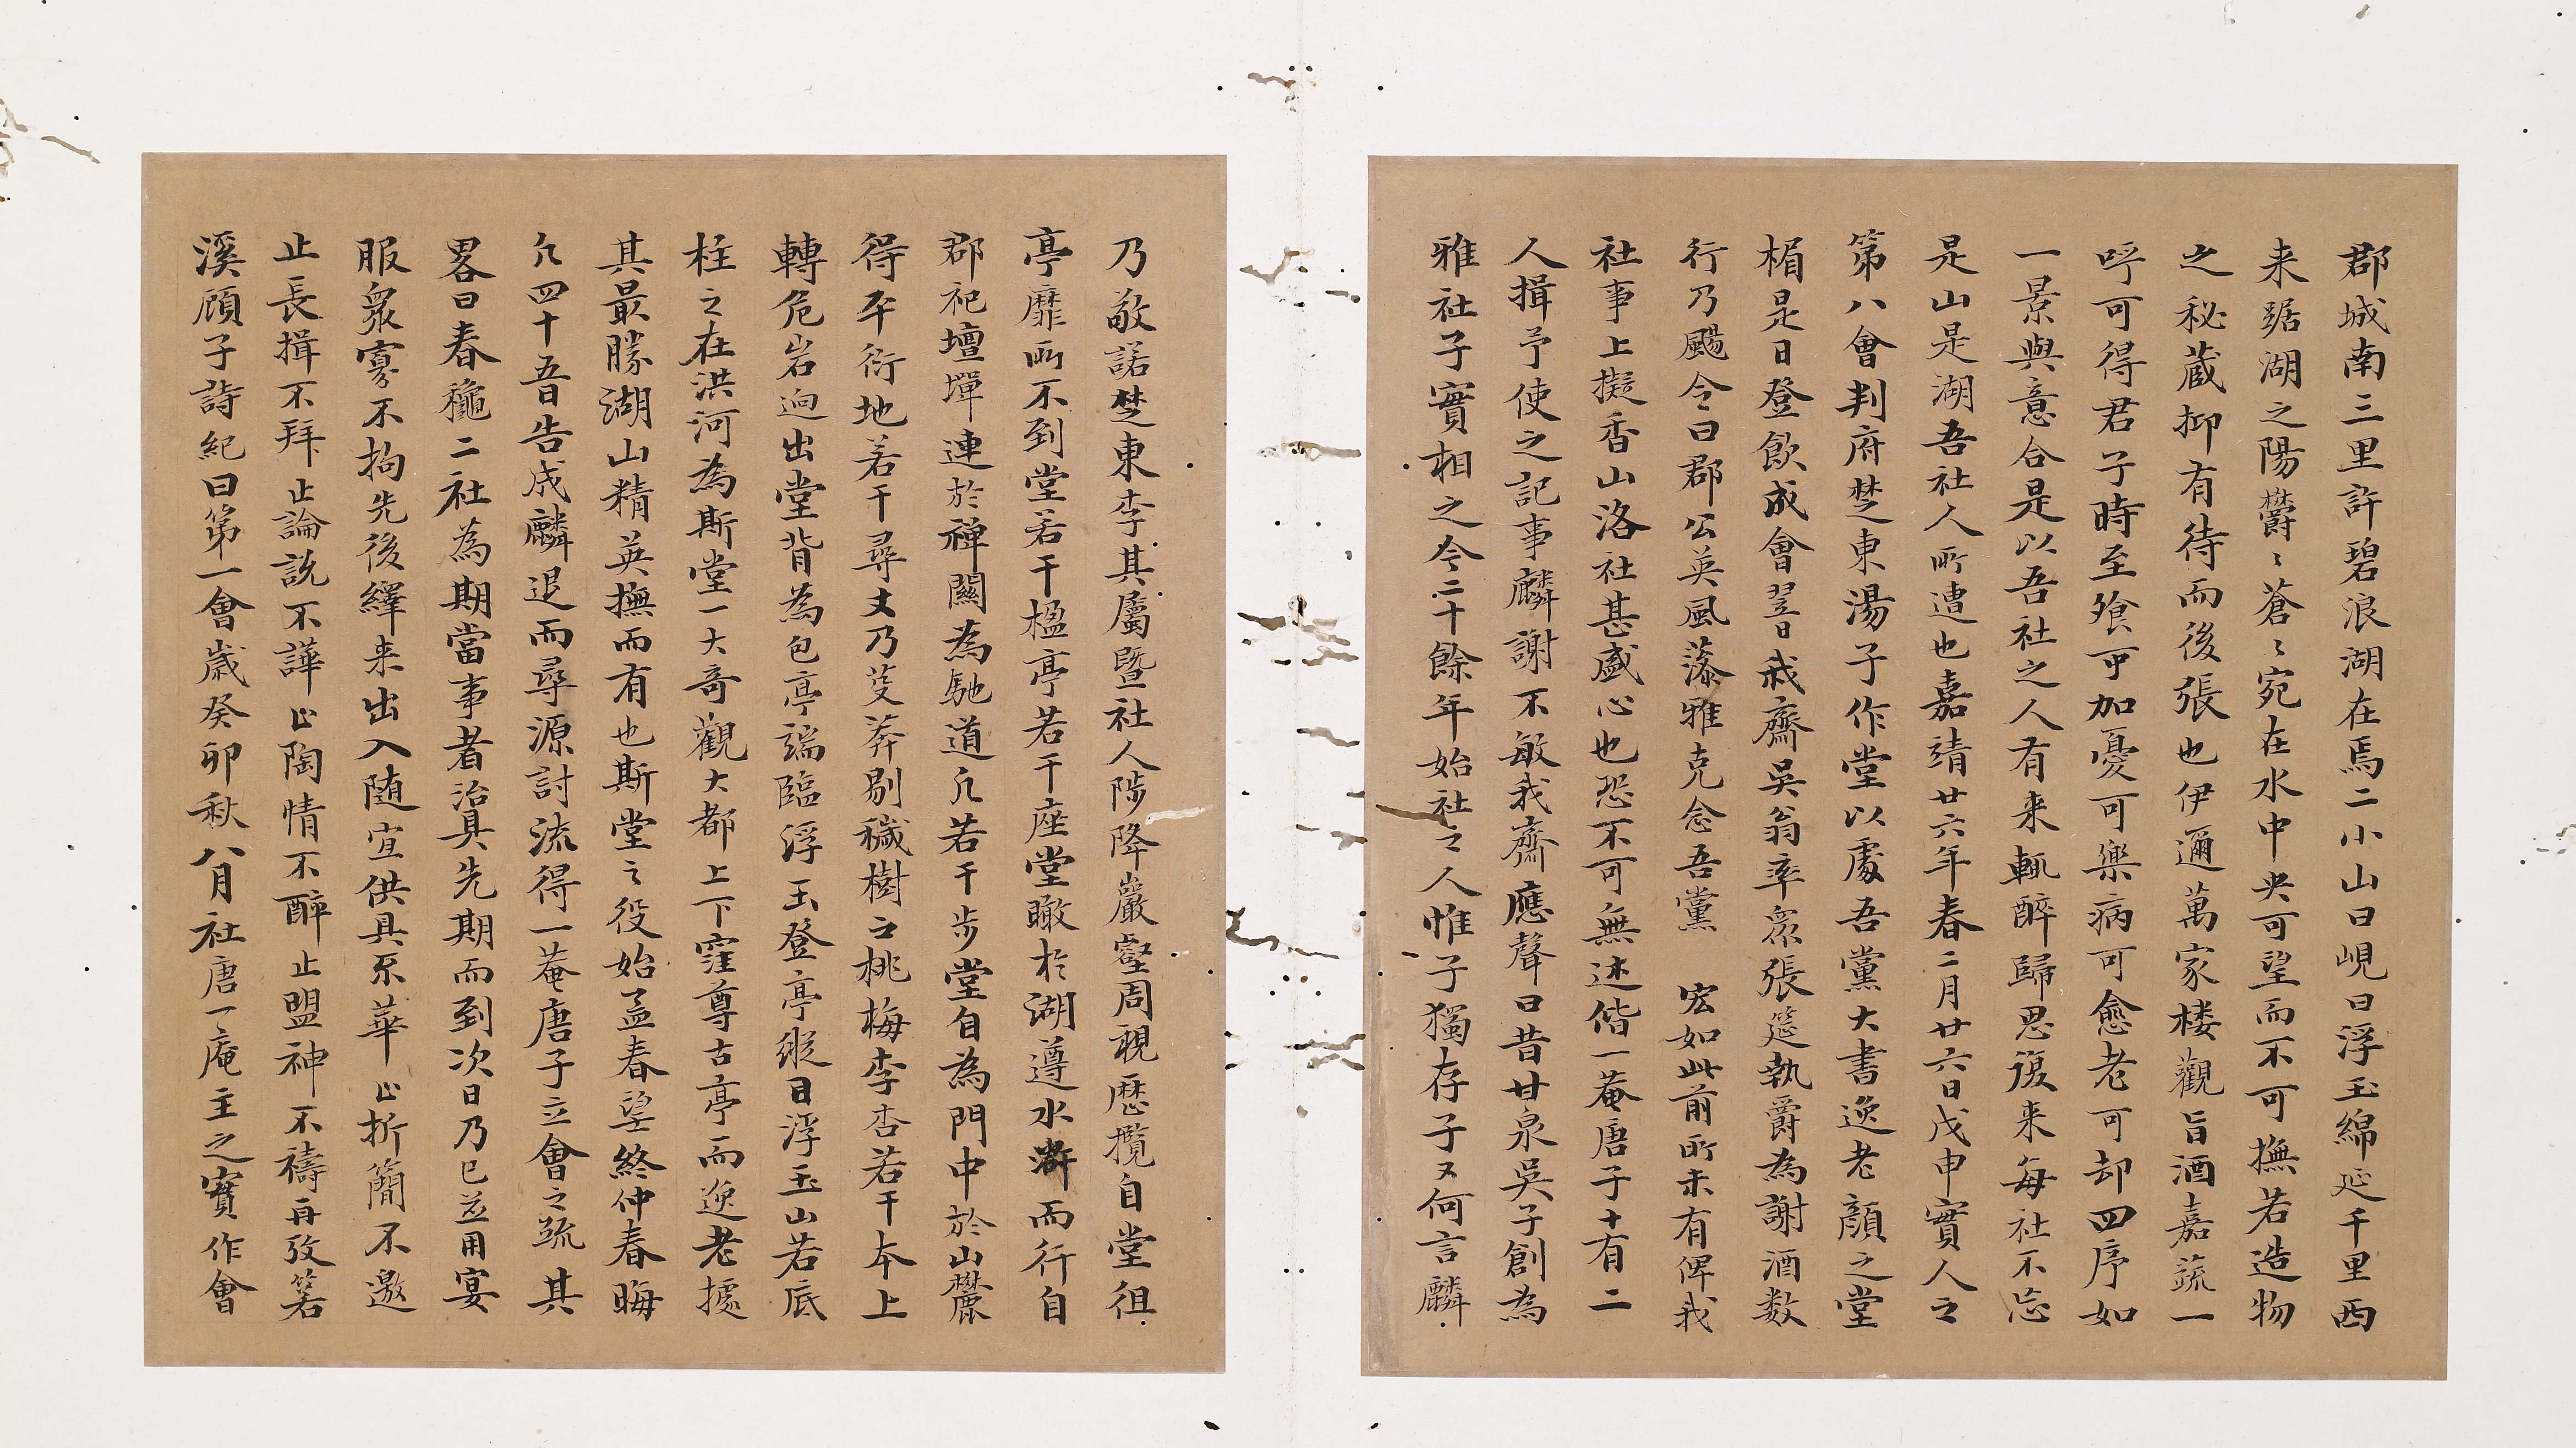 郡城南三里許碧浪湖在焉二小山曰峴曰浮玉綿延千里西
来踞湖之陽欝〻蒼〻宛在水中央可望而不可撫若造物
之秘蔵抑有待而後張也伊邇萬家楼觀旨酒嘉蔬一
呼可得君子時至飧可加憂可樂病可愈老可却四序如
一景與意合是以吾社之人有来輒醉歸思復来每社不忘
是山是湖吾社人所遭也嘉靖廿六年春二月廿六日戊申實人之
第八會判府楚東湯子作堂以處吾黨大書逸老顔之堂
楣是日登飲成會翌日我齋吳翁率衆張筵執爵為謝酒数
行乃颺令曰郡公英風藻雅克念吾黨宏如此前所未有俾我
社事上擬香山洛社甚盛心也恐不可無述偕一菴唐子十有二
人揖予使之記事麟謝不敏我齋應聲曰昔甘泉吳子創為
雅社子實相之今二十餘年始社之人惟子獨存子又何言麟
乃敬諾楚東李其屬暨社人陟降巖壑周視歷攬自堂徂
亭靡所不到堂若干楹亭若干座堂瞰於湖遵水滸而行自
郡祀壇墠連於禅關為馳道凢若干步堂自為門中於山麓
得平衍地若干尋丈乃芟莽剔穢樹之桃梅李杏若干本上
轉危岩逈出堂背為包亭端臨浮玉登亭縱目浮玉山若底
柱之在洪河為斯堂一大竒觀大都上下窪尊古亭而逸老據
其最勝湖山精英撫而有也斯堂之役始孟春望終仲春晦
凢四十五日告成麟退而尋源討流得一菴唐子立會之䟽其
畧曰春穐二社為期當事者治具先期而到次日乃已並用宴
服衆寡不拘先後繹来出入随宜供具系華止折簡不邀
止長揖不拜止論説不譁止陶情不醉止盟神不禱再攷箬
溪顧子詩紀曰第一會歲癸卯秋八月社唐一庵主之實作會